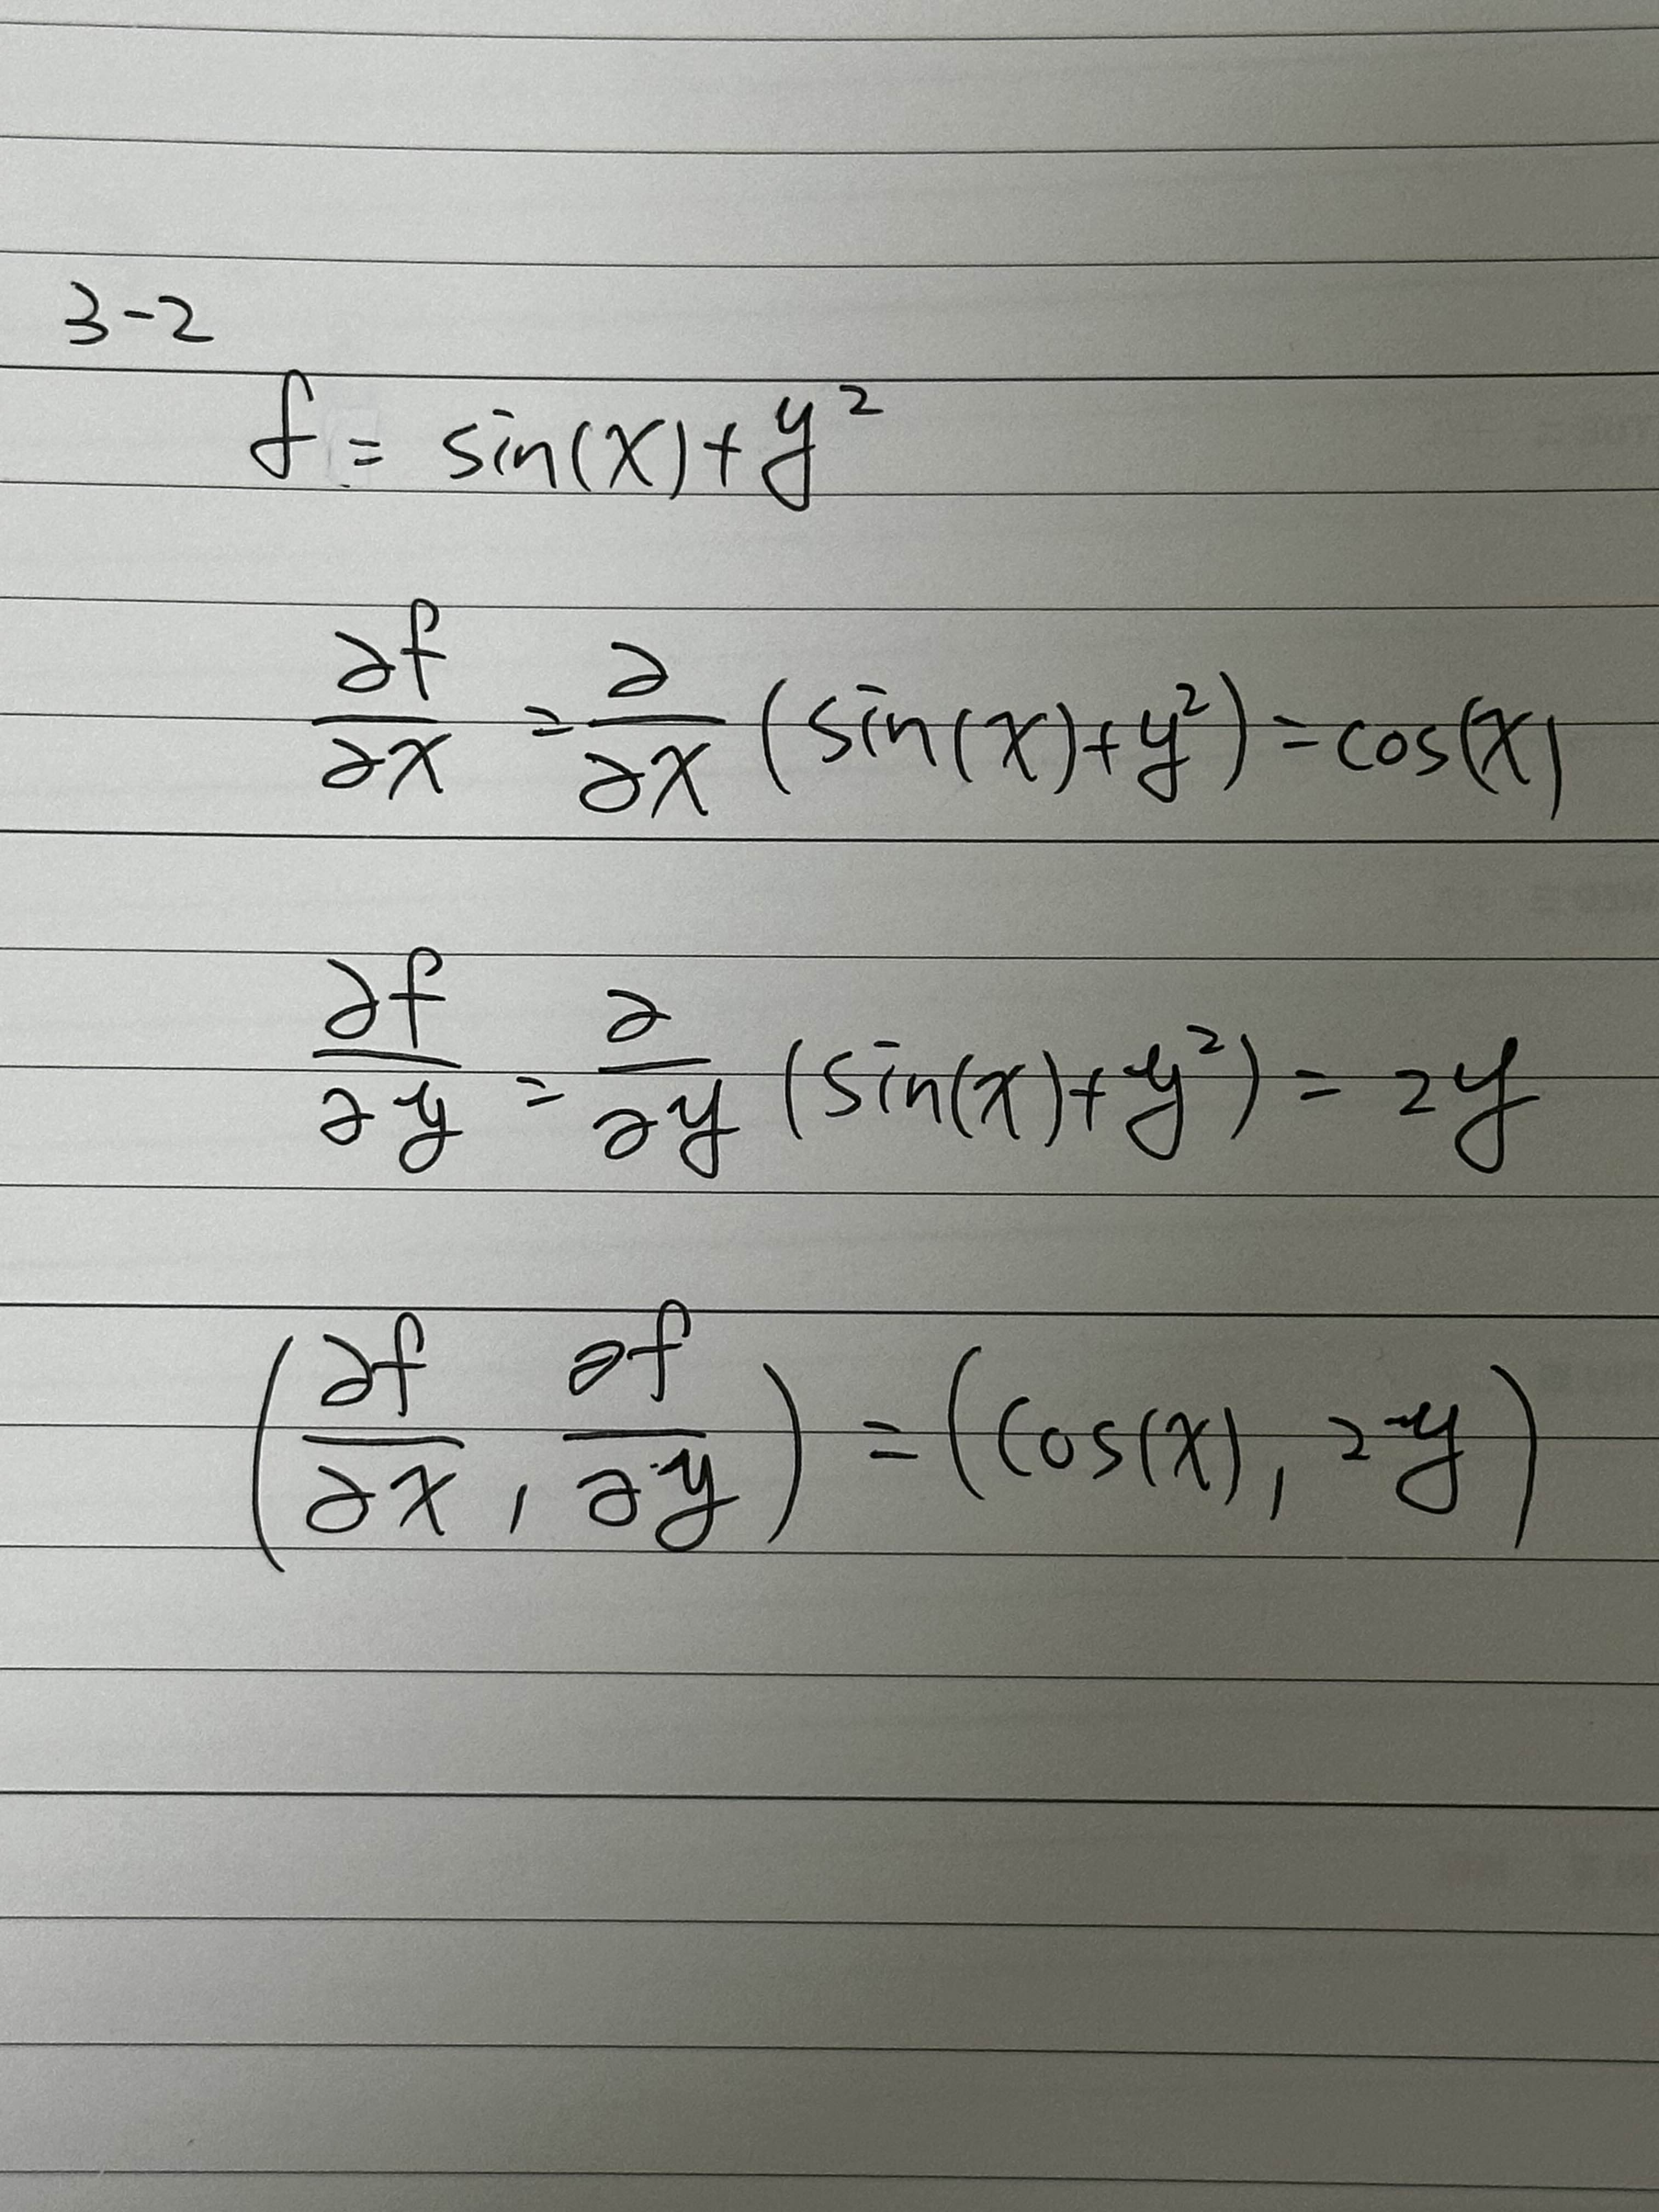 3-2
f = sin(x)+y²
∂f/∂x = ∂/∂x (sin(x)+y²) = cos(x)
∂f/∂y = ∂/∂y (sin(x)+y²) = 2y
(∂f/∂x, ∂f/∂y) = (cos(x), 2y)